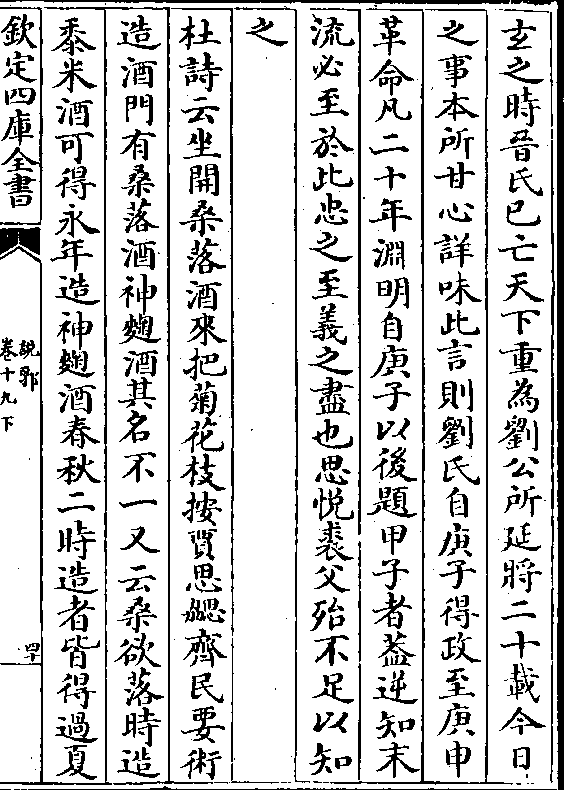 玄之時晉氏已亡天下重為劉公所延將二十載今日
之事本所甘心詳味此言則劉氏自庚子得政至庚申
革命凡二十年淵明自庚子以後題甲子者葢逆知末
流必至於此忠之至義之盡也思悅裘父殆不足以知
之
杜詩云坐開桑落酒來把菊花枝按賈思勰齊民要術
造酒門有桑落酒神麴酒其名不一又云桑欲落時造
黍米酒可得永年造神麴酒春秋二時造者皆得過夏
欽定四庫全書
說郛
卷十九下
四十